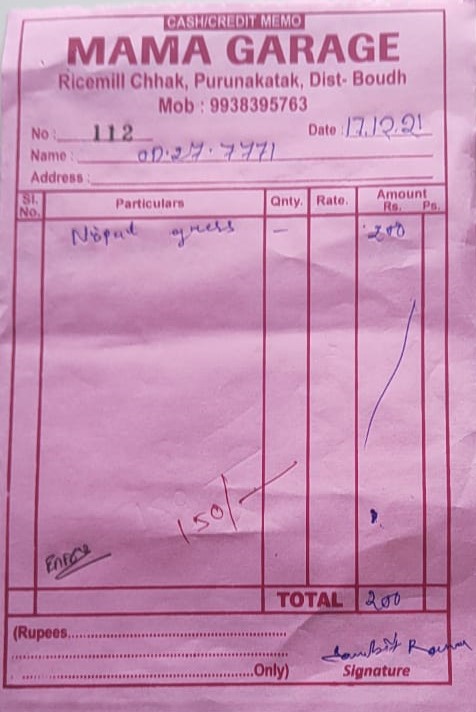 CASH/CREDIT MEMO
MAMA GARAGE
Ricemill Chhak, Purunakatak, Dist- Boudh
Mob : 9938395763
No : 112 Date : 17.12.21
Name : OD.27.7771
Address :
Sl. No. Particulars Qnty. Rate. Amount Rs. Ps.
Nipul gress - 200
150/-
TOTAL 200
(Rupees
Only) Signature